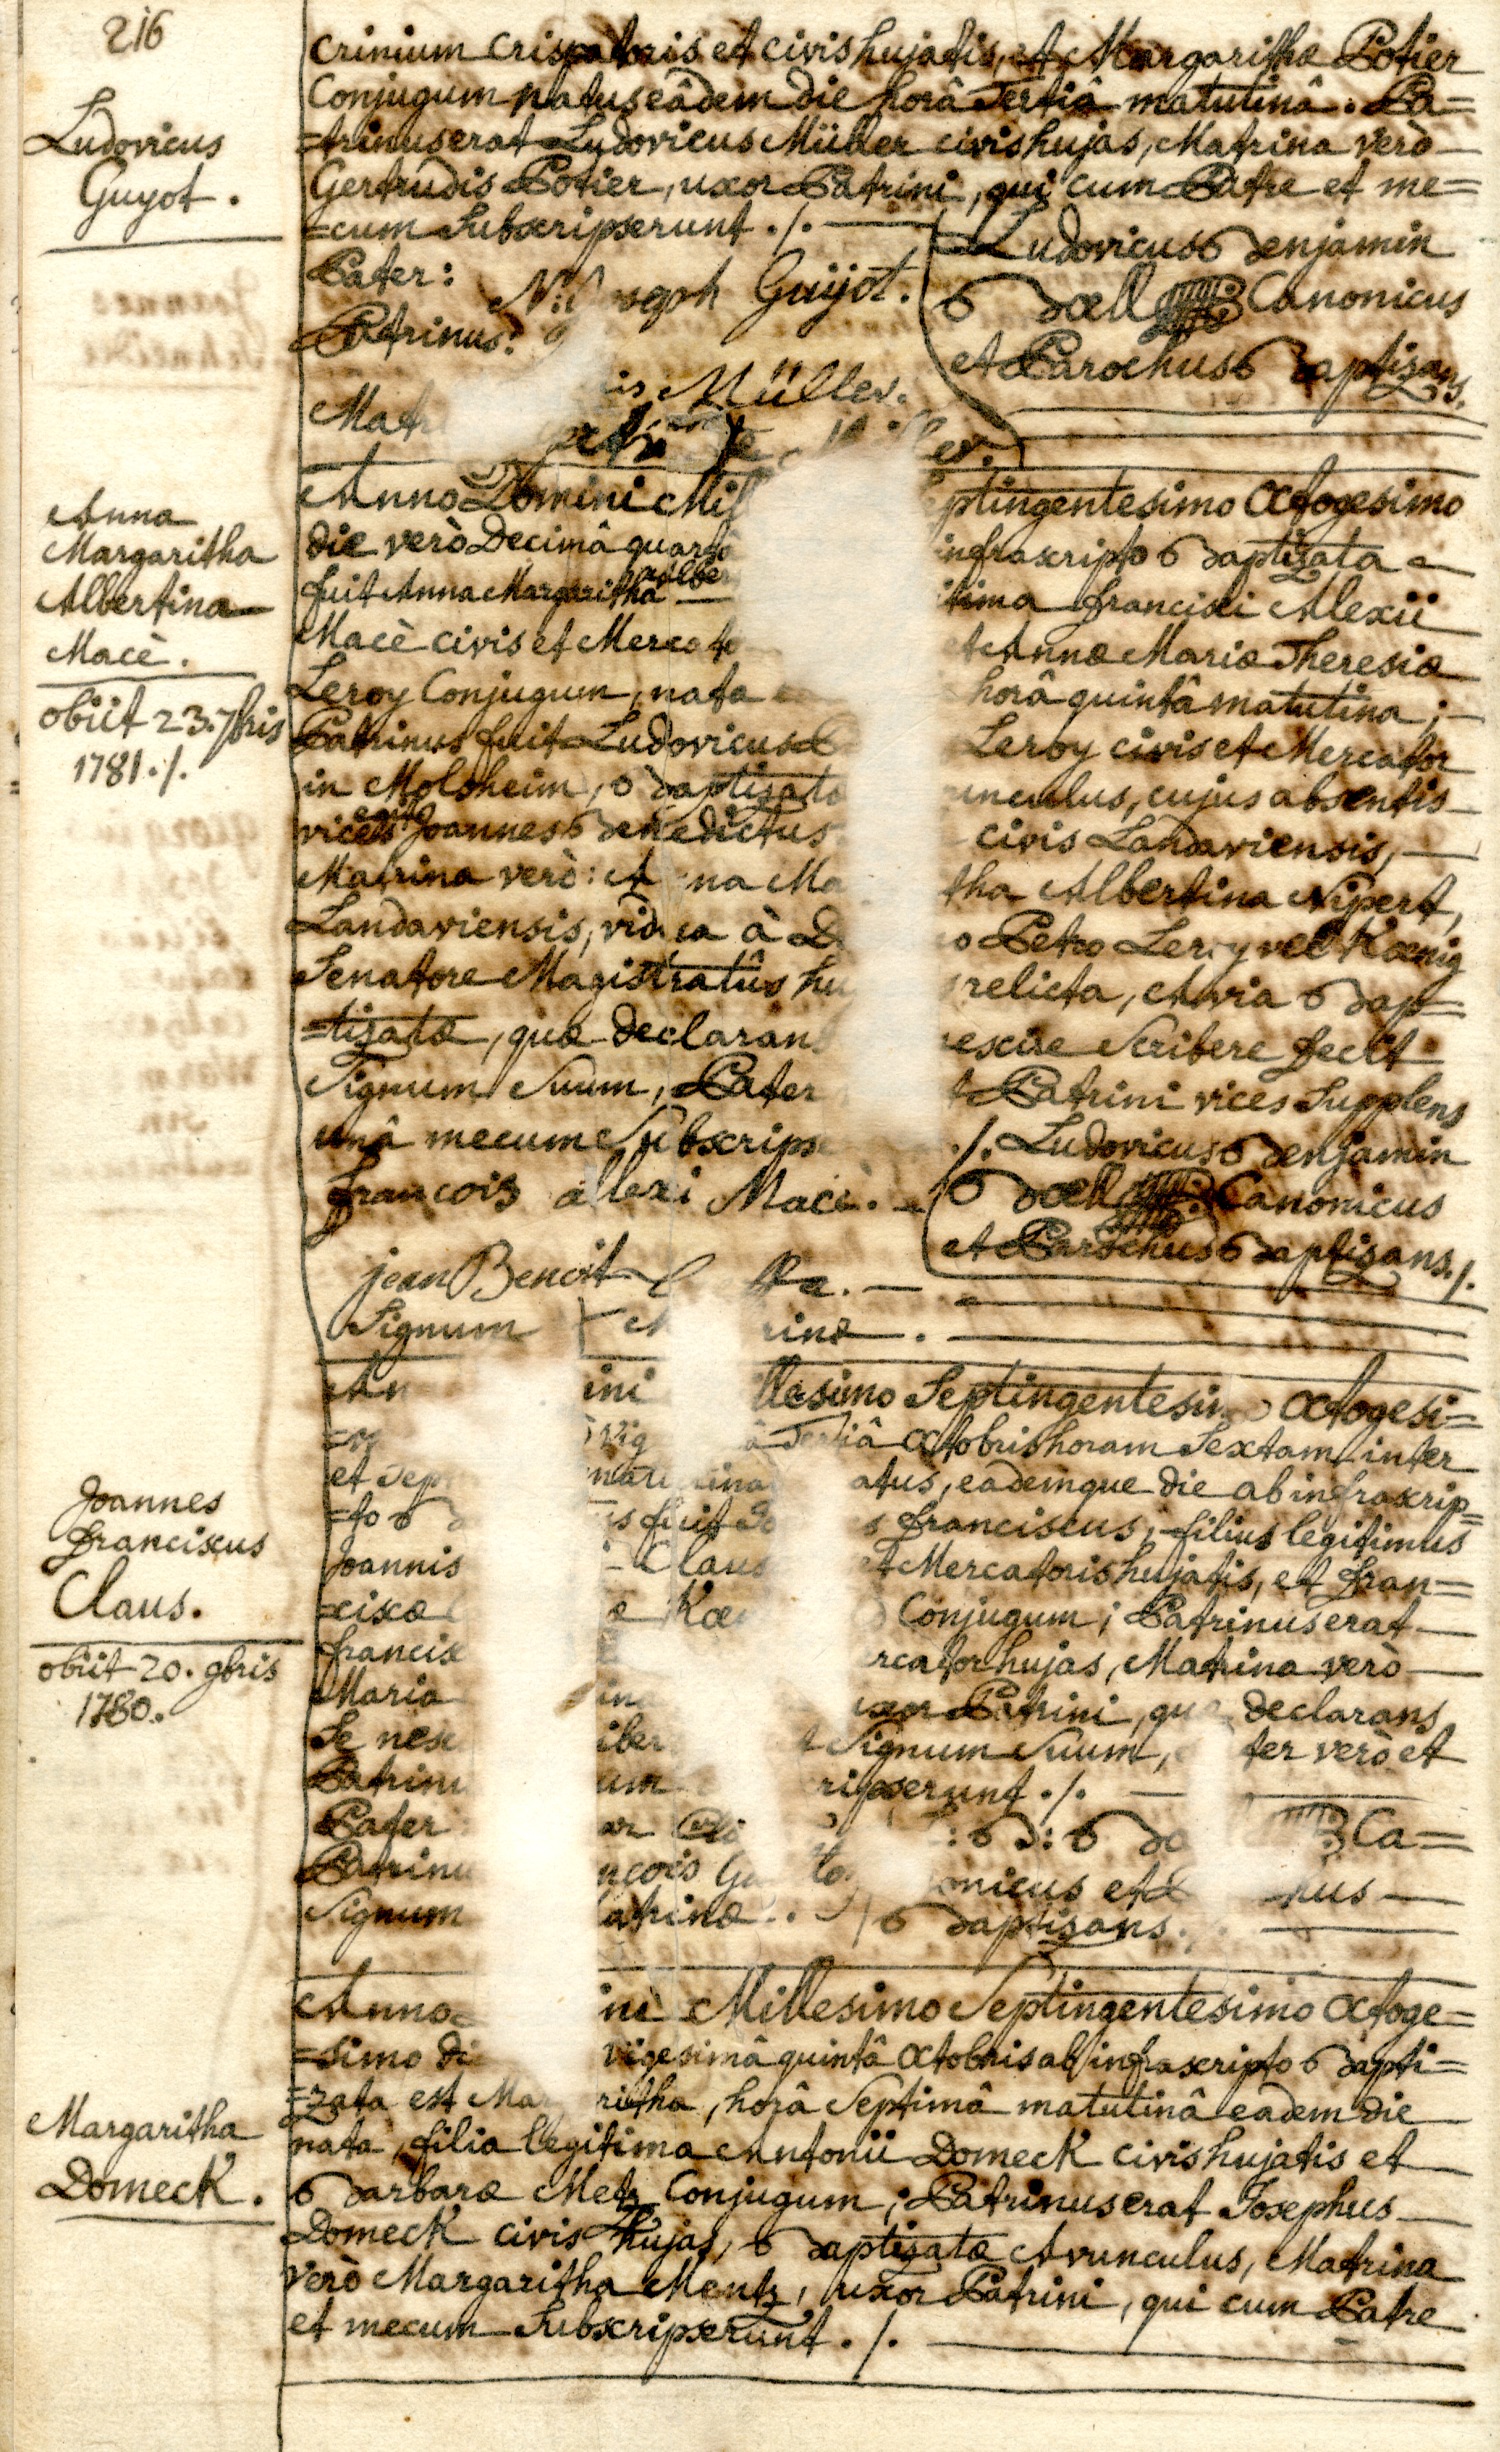 216
Ludovicus
Guyot.
crinium crispatoris et civis hujatis, et Margarithæ Potier
Conjugum natus eâdem die horâ Tertiâ matutinâ. Pa=
=trinus erat Ludovicus Müller civis hujas, Matrina verò
Gertrudis Potier, uxor Patrini, qui cum Patre et me=
=cum Subscripserunt ./.
Pater: Guijot.
Patrinus:
Müller.
Ludovicus Benjamin
Boell Canonicus
et Parochus Baptizans.
Anna
Margaritha
Albertina
Macè.
obiit 23. 7bris
1781./.
Anno Domini Mil ptingentesimo Octogesimo
die verò Decimâ quartâ infrascripto Baptizata
fuit Anna Margaritha Alber tima francisci Alexii
Macè civis et Mercato et Annæ Mariæ Theresiæ
Leroy Conjugum, nata horâ quintâ matutina;
Patrinus fuit Ludovicus Leroy civis et Mercator
in Molsheim, Baptizatæ unculus, cujus absentis
vices Joannes Benedictus civis Landaviensis,
Matrina verò: A na Ma tha Albertina Nipert,
Landaviensis, vidua à D o Petro Leroy vel Kœnig
Senatore Magistratûs hu relicta, Avia Bap=
=tizatæ, quæ declarans escire Scribere fecit
Signum Suum, Pater t Patrini vices Supplens
unâ mecum Subscripse ./. Ludovicus Benjamin
françois allexi Macè. Boell Canonicus
et Parochus Baptizans./.
jean Benoit
Signum rinæ.
Joannes
franciscus
Claus.
obiit 20. 9bris
1780.
An ini llesimo Septingentesimo Octogesi=
vig â Tertiâ Octobris horam Sextam inter
et Sep atus, eademque die ab infrascrip=
=to tus fuit Jo s franciscus, filius legitimus
Joannis Claus et Mercatoris hujatis, et fran=
=ciscæ æ Kœ Conjugum; Patrinus erat
francis rcator hujas, Matrina verò
Maria ina uxor Patrini, quæ declarans
Se nesc iber t Signum Suum, ter verò et
Patrinu um ripserunt ./.
Pater
Patrinu nçois
Signum atrinæ.
L: B: Bo Ca=
onicus et hus
Baptizans.
Margaritha
Domeck.
Anno ini Millesimo Septingentesimo Octoge=
=simo di vigesimâ quintâ Octobris ab infrascripto Bapti=
=zata est Mar ritha, horâ Septimâ matutinâ eadem die
nata, filia legitima Antonii Domeck civis hujatis et
Barbaræ Metz Conjugum; Patrinus erat Josephus
Domeck civis hujas, Baptizatæ Avunculus, Matrina
verò Margaritha Mentz, uxor Patrini, qui cum Patre
et mecum Subscripserunt ./.